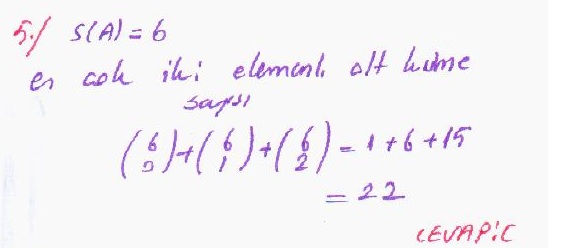 5./ S(A) = 6
en çok iki elemanlı alt küme
sayısı
(6 0) + (6 1) + (6 2) = 1 + 6 + 15
= 22
CEVAP: C